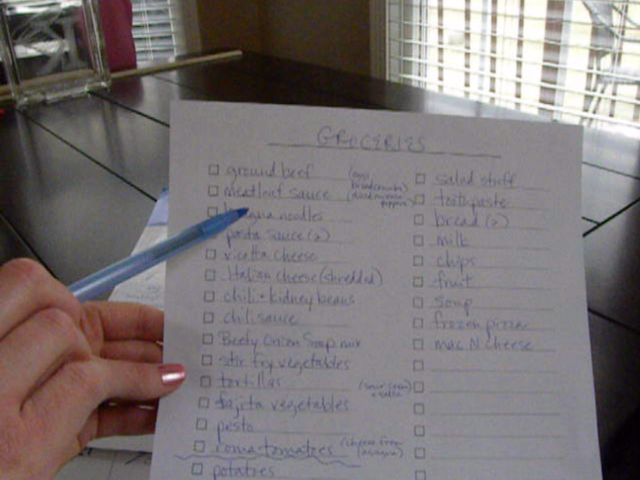 GROCERIES
ground beef (egg, breadcrumbs)
meatloaf sauce
noodles
pasta sauce (2)
ricotta cheese
Italian cheese (shredded)
chili + kidney beans
chili sauce
Beefy Onion Soup mix
stir fry vegetables
tortillas (sour cream + salsa)
fajita vegetables
pesto
roma tomatoes (cheese from
potatoes
salad stuff
toothpaste
bread (2)
milk
chips
fruit
soup
frozen pizza
mac N cheese